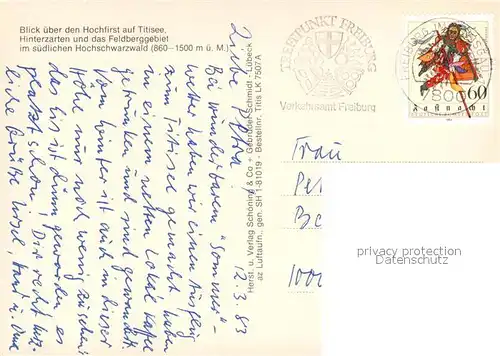 Blick über den Hochfirst auf Titisee,
Hinterzarten und das Feldberggebiet
im südlichen Hochschwarzwald (860–1500 m ü. M.)
TREFFPUNKT FREIBURG
Verkehrsamt Freiburg
FREIBURG IM BREISGAU
7800
60
Fastnacht
Herst. u. Verlag Schöning & Co + Gebrüder Schmidt · Lübeck
az Luftaufn., gen. SH 1-81019 – Bestellnr. Titis LK 7507A
12.3.83
Liebe Petra,
Bei wunderbarem "Sommer"-
wetter haben wir einen Ausflug
zum Titisee gemacht, haben
in einem netten Lokal Kaffee
getrunken und sind gewandert.
Vom Winter ist auch in dieser
Höhe nur noch wenig zu sehen.
das Eis ist dünn geworden, es
schon. Dir recht herz-
liche Grüße
Frau
Pet
Be
1000
privacy protection
watermark